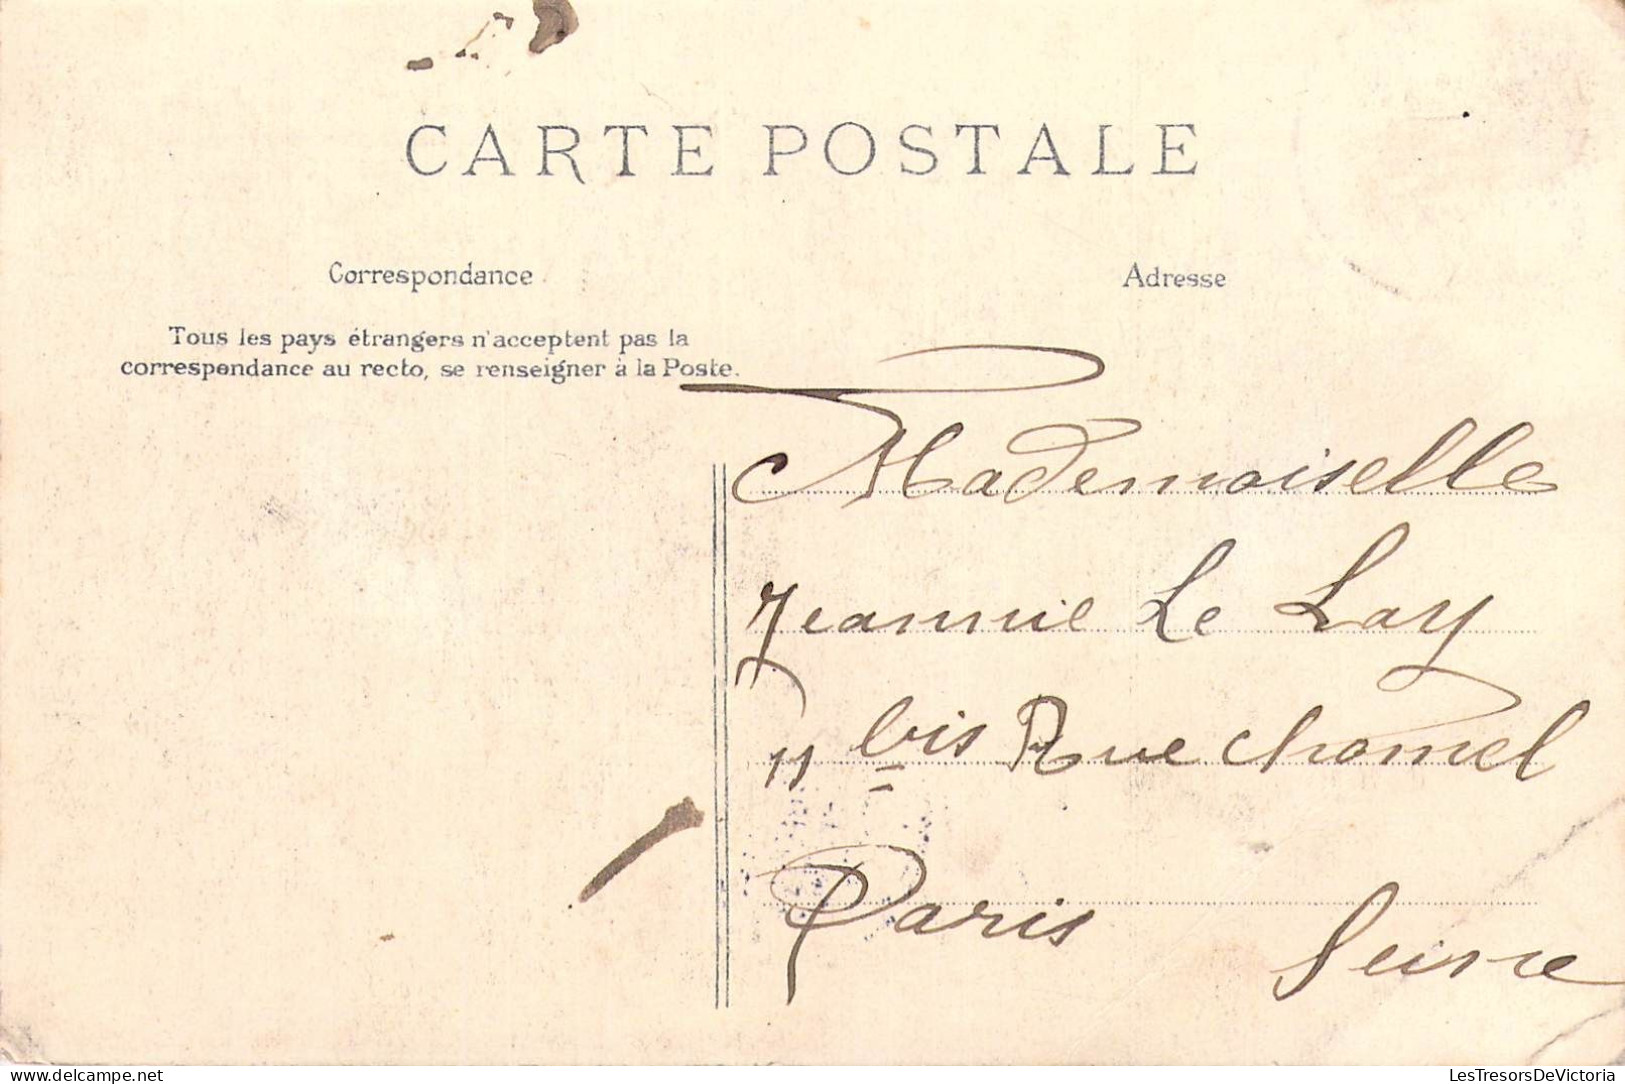 CARTE POSTALE
Correspondance
Tous les pays étrangers n'acceptent pas la
correspondance au recto, se renseigner à la Poste.
Adresse
Mademoiselle
Jeannie Le Lay
11 bis Rue Chomel
Paris Seine
delcampe.net
LesTresorsDeVictoria